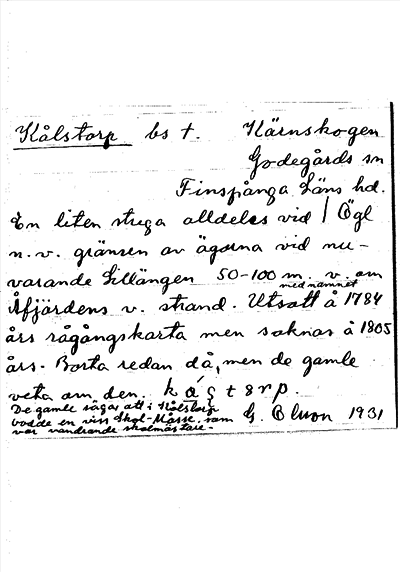 Kålstorp bs t. Kärnskogen
Godegårds sn
Finspånga Läns hd.
En liten stuga alldeles vid / Ögl
n.v. gränsen av ägorna vid nu-
varande Lillängen 50-100 m. v. om
Åfjärdens v. strand. Utsatt med namnet å 1784
års rågångskarta men saknas å 1805
års. Borta redan då, men de gamle
veta om den.
De gamle säga att i Kålstorp
bodde en viss Skol-Måsse, som
var vandrande skolmästare.
G. Blwon 1931